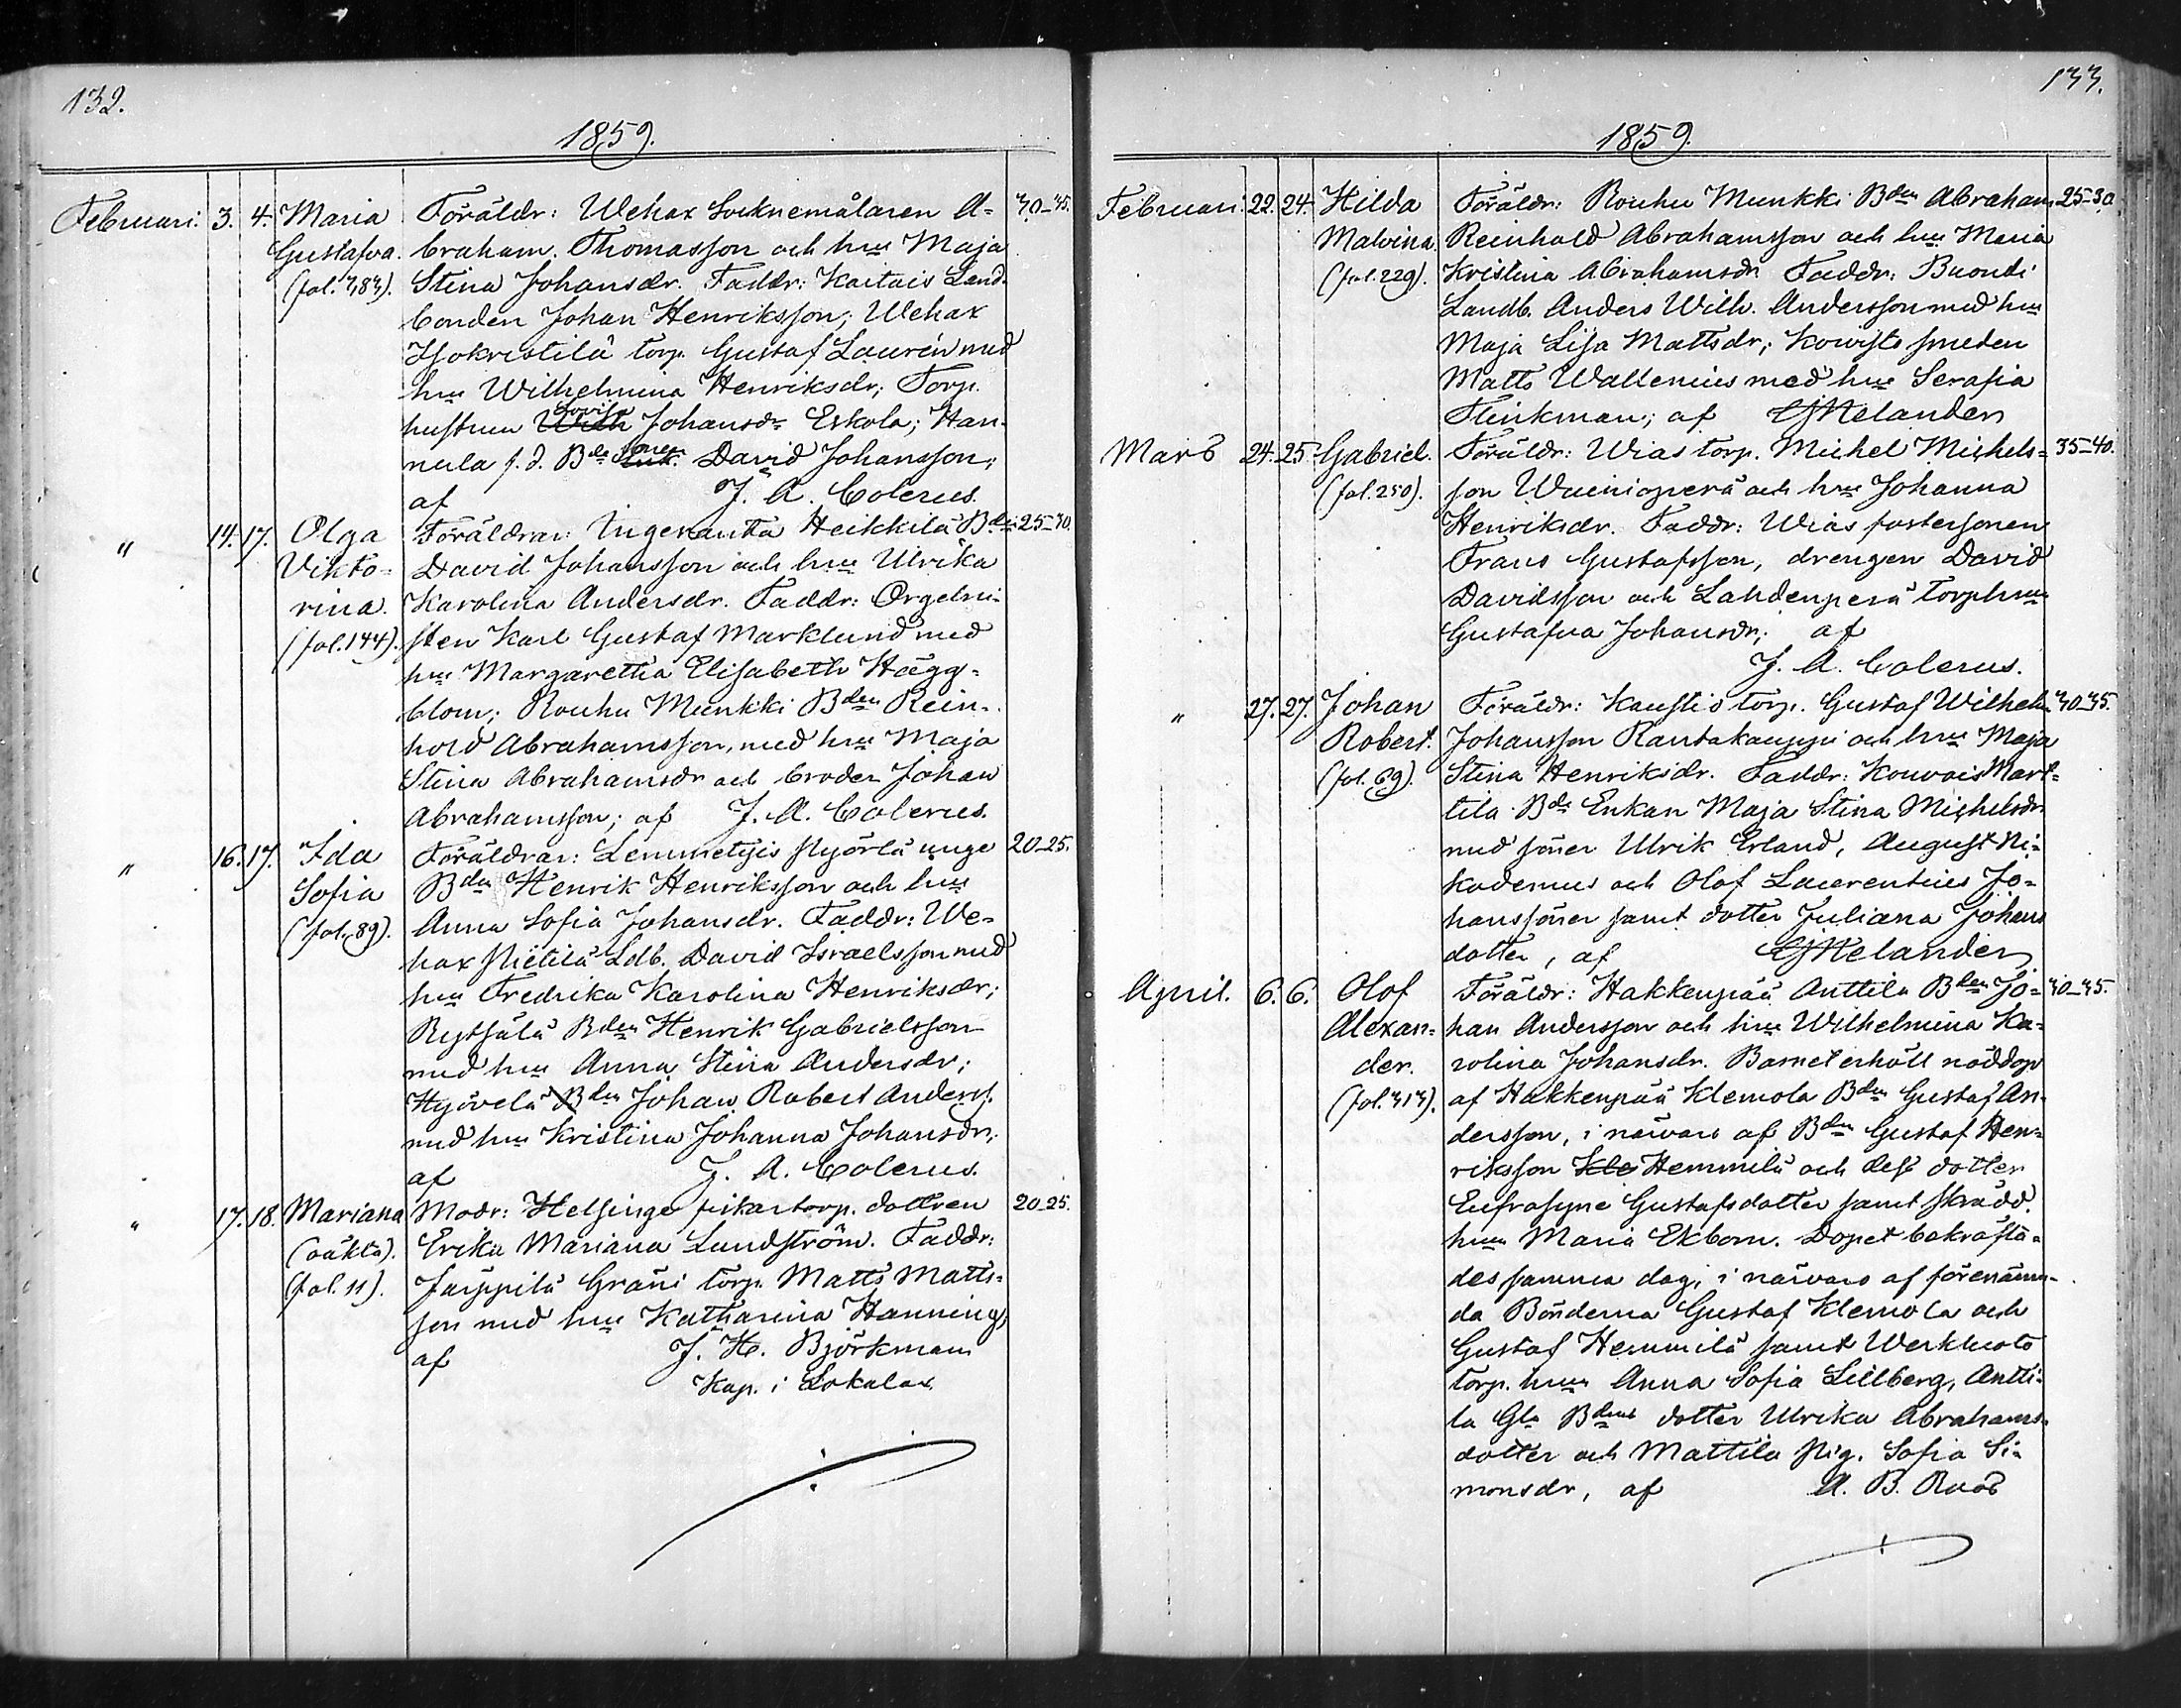 132.
1859.
Februari. 3. 4. Maria Föräldr: Wehax Socknemålaren A= 30-35.
Gustafva. braham Thomasson och hru Maja
(fol. 383). Stina Johansdr. Faddr: Kaitais Land-
bonden Johan Henriksson; Wehax
Isokristilä torp. Gustaf Laurén med
hru Wilhelmina Henriksdr; Torp.
hustrun Lovisa Johansdr Eskola; Han-
nula f. d. Bde Sonen David Johansson;
af J. A. Colerus.
" 14. 17. Olga Föräldrar: Ingeranta Heikkilä Bden 25-30.
Vikto= David Johansson och hru Ulrika
rina. Karolina Andersdr. Faddr: Orgelni-
(fol. 144). sten Karl Gustaf Marklund med
hru Margaretha Elisabeth Hägg=
blom; Rouhu Munkki Bden Rein-
hold Abrahamsson, med hru Maja
Stina Abrahamsdr och broder Johan
Abrahamsson; af J. A. Colerus.
" 16. 17. Ida Föräldrar: Lemmetyis Pyörlä unge 20-25.
Sofia Bden Henrik Henriksson och hru
(fol. 89). Anna Sofia Johansdr. Faddr: We=
hax Pietilä Ldb. David Israelsson med
hru Fredrika Karolina Henriksdr;
Rytsälä Bden Henrik Gabrielsson
med hru Anna Stina Andersdr;
Hyövelä Bden Johan Robert Anderss.
med hru Kristina Johanna Johansdr;
af J. A. Colerus.
" 17. 18. Mariana Modr: Helsinge fiskartorp. dottren 20-25.
(oäkta). Erika Mariana Lundström. Faddr:
(fol. 11). Järppilä Gräni torp. Matts Matts=
son med hru Katharina Hanning;
af J. H. Björkman
Kap. i Lokalax
133.
1859.
Februari. 22. 24. Hilda Föräldr: Rouhu Munkki Bden Abraham 25-30.
Malvina Reinhold Abrahamsson och hru Maria
(fol. 229). Kristina Abrahamsdr Faddr: Buondi
Landb. Anders Wilh. Andersson med hru
Maja Lisa Mattsdr; Kowisto smeden
Matts Wallenius med hru Serafia
Flinkman; af Melander
Mars 24. 25. Gabriel. Föräldr: Wias torp. Michel Michels= 35-40.
(fol. 250). son Wuenioperä och hru Johanna
Henriksdr. Faddr: Wias fostersonen
Frans Gustafsson, drengen David
Davidsson och Lahdenperä torphru
Gustafva Johansdr; af
J. A. Colerus.
" 27. 27. Johan Föräldr: Kaustio torp. Gustaf Wilhelm 30-35.
Robert. Johansson Rantakauppi och hru Maja
(fol. 69). Stina Henriksdr. Faddr: Kouvois Mart=
tila Bde Enkan Maja Stina Michelsdr
med söner Ulrik Erland, August Ni=
kodemus och Olof Laurentius Jo=
hanssöner samt dotter Juliana Johans
dotter, af Melander
April. 6. 6. Olof Föräldr: Hakkenpää Anttila Bden Jo= 30-35.
Alexan= han Andersson och hru Wilhelmina Ka=
der. rolina Johansdr. Barnet erhöll nöddop
(fol. 313). af Hakkenpää Klemola Bden Gustaf An-
dersson, i närvaro af Bden Gustaf Hen=
riksson Kle Hemmilä och dess dotter
Eufrosyne Gustafsdotter samt skrädd.
hru Maria Ekbom. Dopet bekräfta=
des samma dag, i närvaro af förenämn-
da Bönderna Gustaf Klemola och
Gustaf Hemmilä samt Werkluoto
torp. hru Anna Sofia Lillberg, Antti-
la Gla Bdens dotter Ulrika Abrahams-
dotter och Mattila Pig. Sofia Si=
monsdr, af A. B. Roos